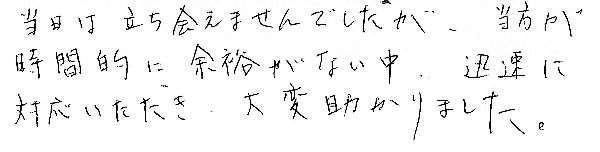 当日は立ち会えませんでしたが、当方が
時間的に余裕がない中、迅速に
対応いただき、大変助かりました。